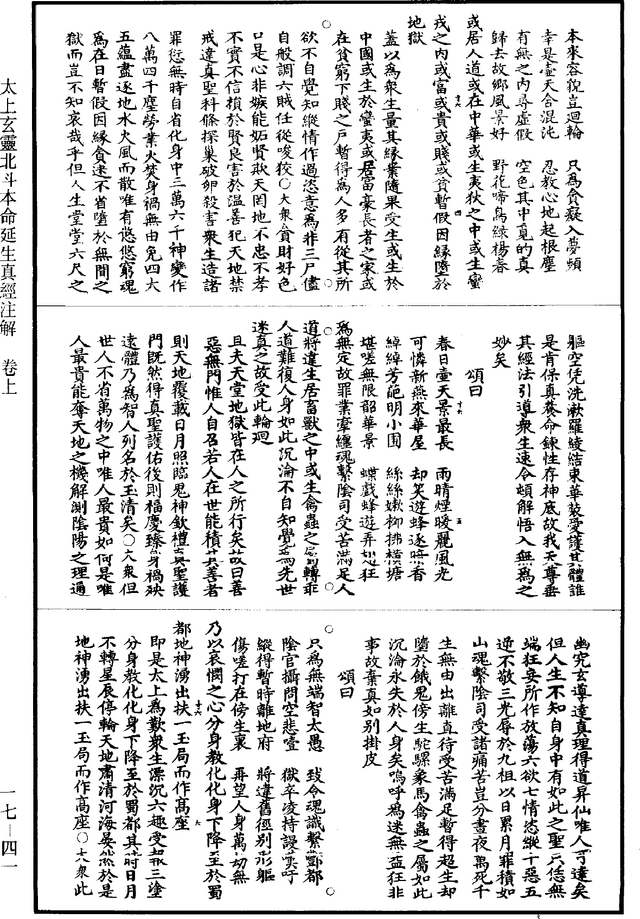 本來容貌豈迴輪　只為貪癡入夢頻
幸是壺天合混沌　忍教心地起根塵
有無之內尋虛假　空色其中覓的真
歸去故鄉風景好　野花啼鳥綠楊春
或居人道或在中華或生夷狄之中或生蠻
戎之內或富或貴或賤或貧暫假因緣墮於
地獄
蓋以為眾生量其緣業隨果受生或生於
中國或生於蠻夷或居富豪長者之家或
在貧窮下賤之戶暫得為人多有從其所
欲不自覺知縱情作過恣意為非三尸儘
自般調六賊任從唆狡〇大衆貪財好色
口是心非嫉能妬賢欺天罔地不忠不孝
不實不信損於賢良害於溫善犯天地禁
戒違真聖科條探巢破卵殺害衆生造諸
罪愆無時自省化身中三萬六千神變作
八萬四千塵勞業火焚身禍無由免四大
五蘊盡逐地水火風而散唯有悠悠窮魂
為在日暫假因緣貪迷不省墮於無間之
獄而豈不知哀哉乎但人生堂堂六尺之
軀空凭洗漱羅綾結束華裝愛護其體誰
是肯保真養命鍊性存神底故我天尊垂
其經法引導衆生速令頓解悟入無為之
妙矣
頌曰
春日壺天景最長　雨晴煙暖麗風光
可憐新燕來華屋　却笑遊蜂逐暗香
綽綽芳葩明小圃　絲絲嫰柳拂橫塘
堪嗟無限韶華景　蝶戲蜂遊弄恕狂
為無定故罪業牽纏魂繫陰司受苦滿足人
道將違生居畜獸之中或生禽蟲之屬轉乖
人道難復人身如此沉淪不自知覺為先世
迷真之故受此輪迴
且夫天堂地獄皆在人之所行矣故曰善
惡無門惟人自召若人在世能積其善者
則天地覆載日月照臨鬼神欽禮真聖護
門既然得真聖護佑後則福慶臻身禍殃
遠體乃為智人列名於玉清矣〇大衆但
世人不省萬物之中唯人最貴如何是唯
人最貴能奪天地之機解測陰陽之理通
幽究玄導達真理得道昇仙唯人可達矣
但人生不知自身中有如此之聖只恁無
端狂妄所作放蕩六欲七情恣縱十惡五
逆不敬三光辱於九祖以日累月罪積如
山魂繫陰司受諸痛苦豈分晝夜萬死千
生無由出離直待受苦滿足暫得超生却
墮於餓鬼傍生駝騾象馬禽蟲之屬如此
沉淪永失於人身矣嗚呼為迷無益狂非
事故棄真如別掛皮
頌曰
只為無端智太愚　致令魂識繫酆都
陰官攝問空悲噎　獄卒凌持謾哭呼
縱得暫時離地府　將違舊徑別形軀
傷嗟打在傍生裏　再望人身萬劫無
乃以哀憫之心分身教化化身下降至於蜀
都地神湧出扶一玉局而作高座
即是太上為歎衆生漂沉六趣受報三塗
分身教化化身下降至於蜀都其時日月
不轉星辰停輪天地肅清河海晏然於是
地神湧出扶一玉局而作高座〇大衆此
太上玄靈北斗本命延生真經注解　卷上
一七—四一